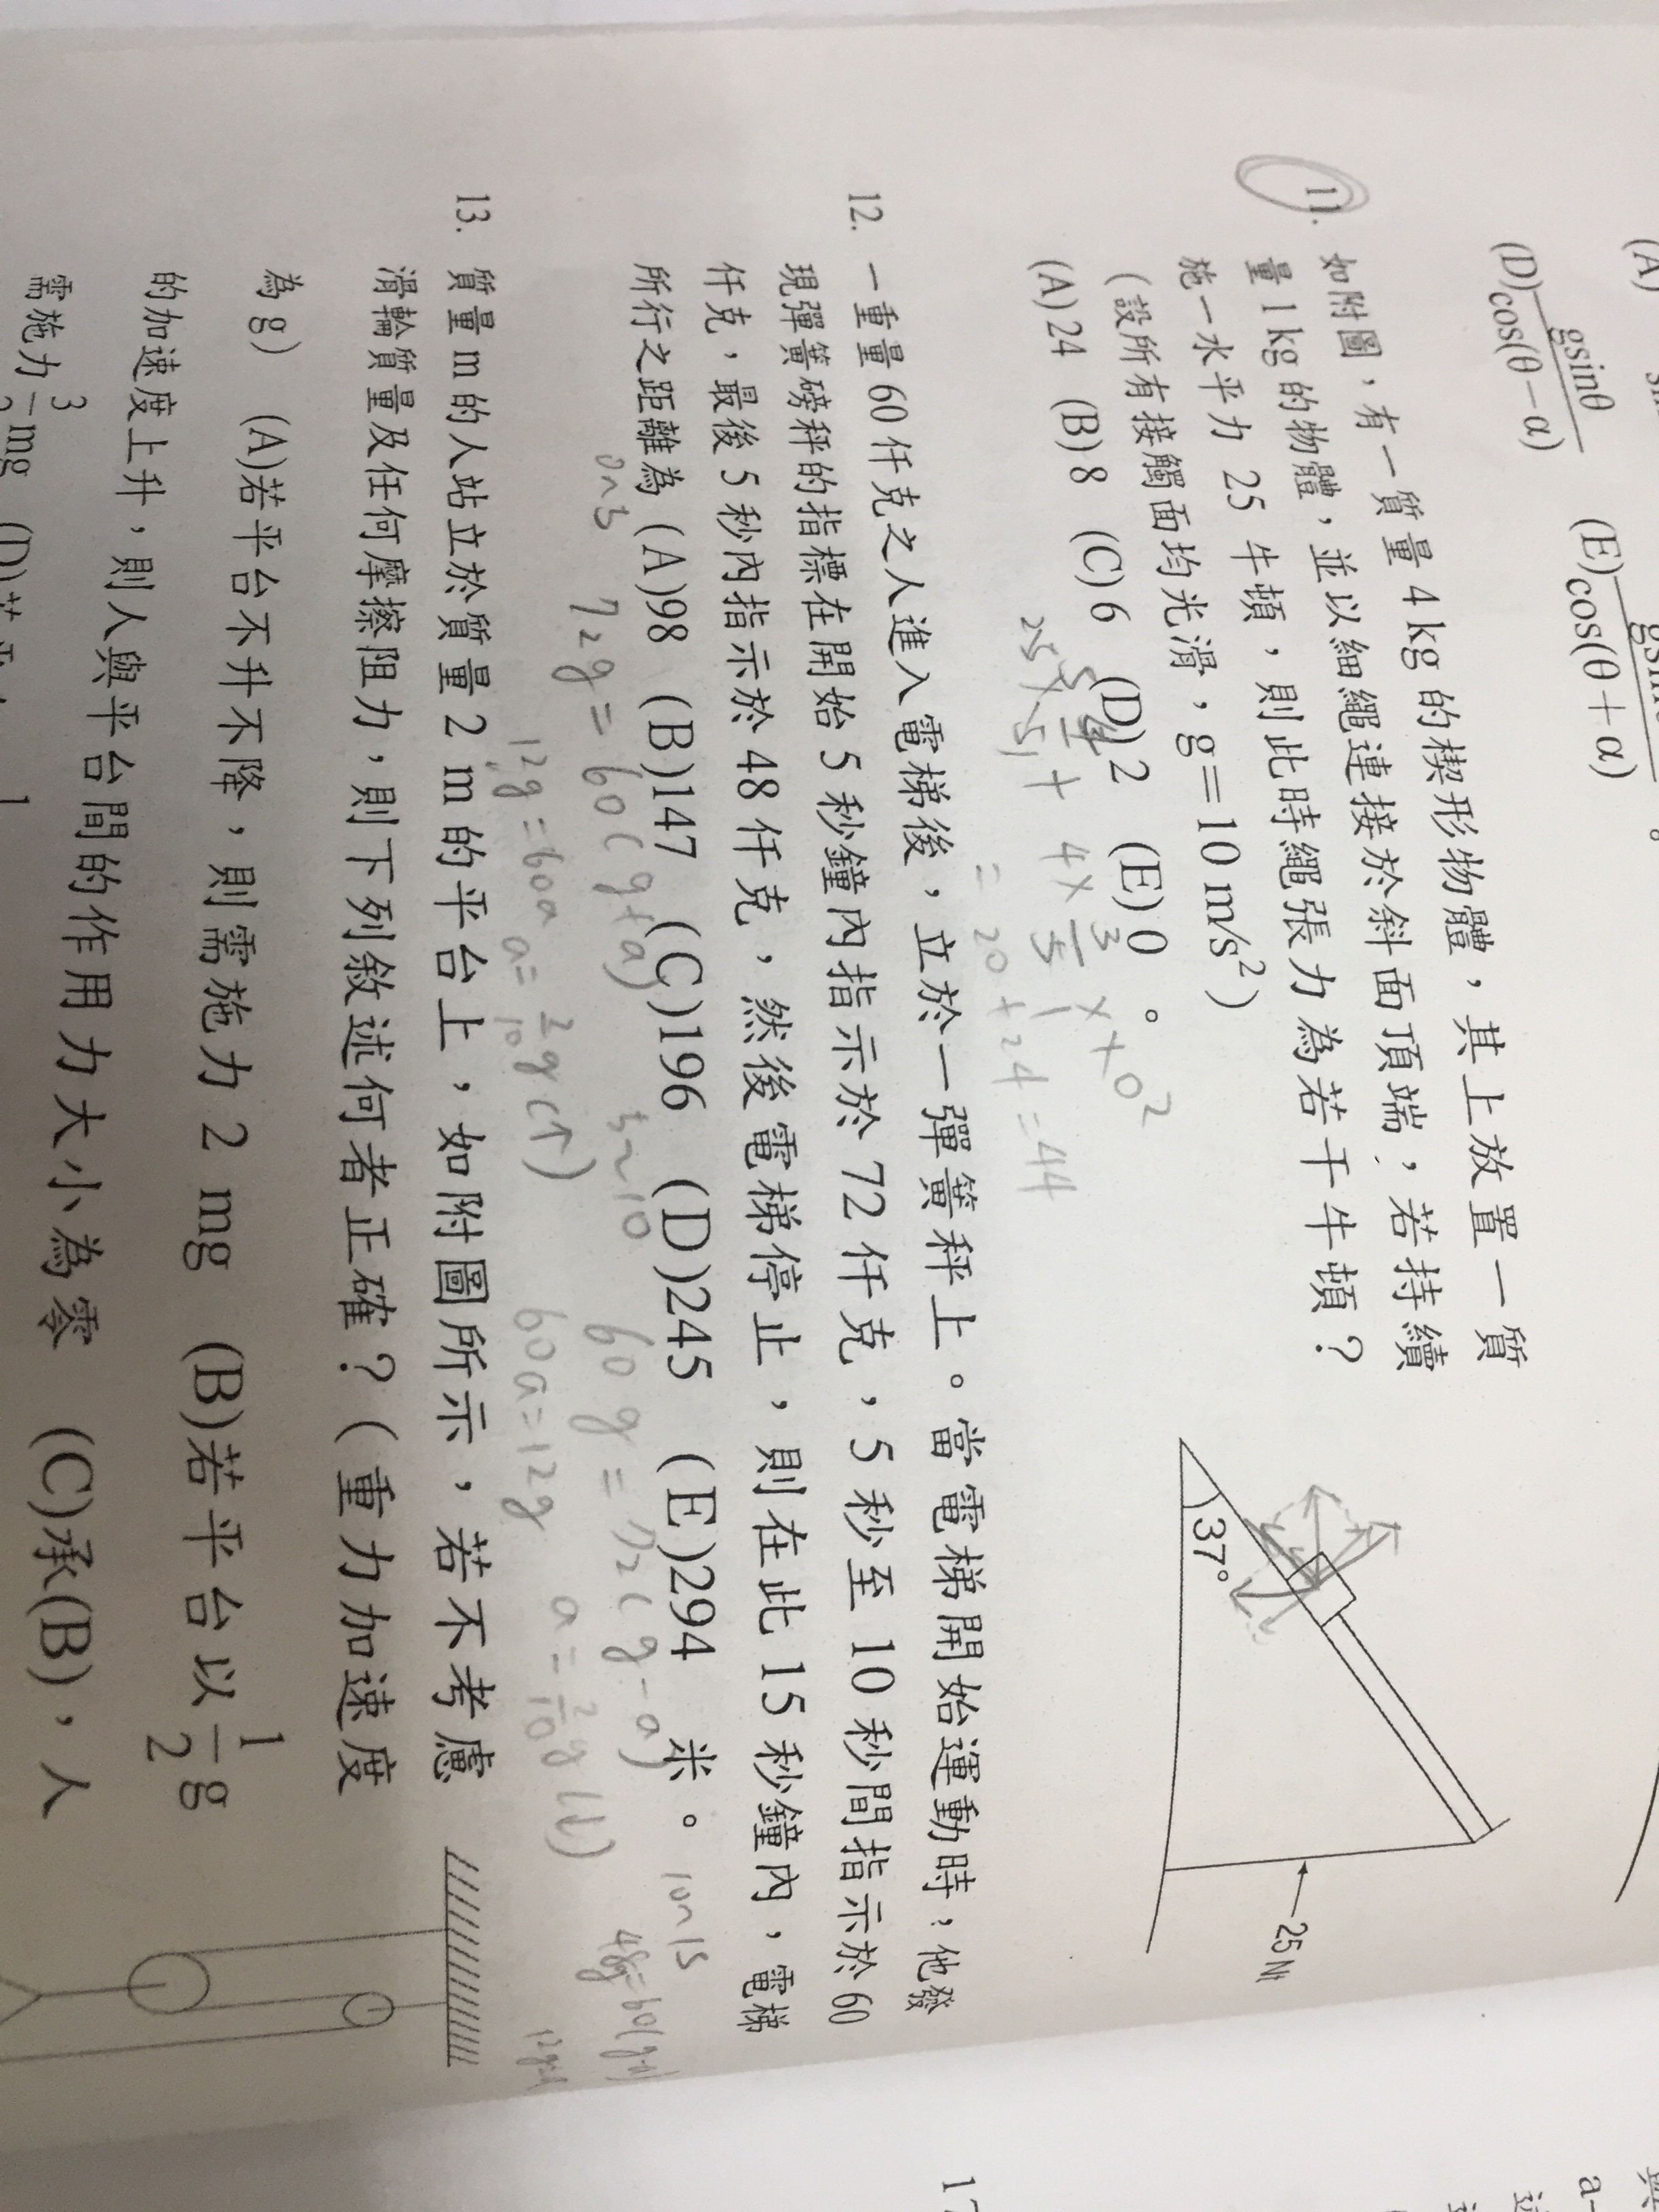 (A)
(D) gsinθ/cos(θ−α) (E) /cos(θ+α) 。
11. 如附圖，有一質量 4 kg 的楔形物體，其上放置一質
量 1 kg 的物體，並以細繩連接於斜面頂端，若持續
施一水平力 25 牛頓，則此時繩張力為若干牛頓？
（設所有接觸面均光滑，g＝10 m/s²）
(A) 24 (B) 8 (C) 6 (D) 2 (E) 0 。
37°
25 Nt
4 × 3/5 ×
= 20 + 24 = 44
12. 一重量 60 仟克之人進入電梯後，立於一彈簧秤上。當電梯開始運動時，他發
現彈簧磅秤的指標在開始 5 秒鐘內指示於 72 仟克，5 秒至 10 秒間指示於 60
仟克，最後 5 秒內指示於 48 仟克，然後電梯停止，則在此 15 秒鐘內，電梯
所行之距離為 (A)98 (B)147 (C)196 (D)245 (E)294 米。
72g = 60(g+a)
12g = 60a a = 2/10 g (↑)
60g = 72(g−a)
60a = 12g a = 2/10 g (↓)
13. 質量 m 的人站立於質量 2 m 的平台上，如附圖所示，若不考慮
滑輪質量及任何摩擦阻力，則下列敘述何者正確？（重力加速度
為 g） (A)若平台不升不降，則需施力 2 mg (B)若平台以 1/2 g
的加速度上升，則人與平台間的作用力大小為零 (C)承(B)，人
需施力 mg (D)
17